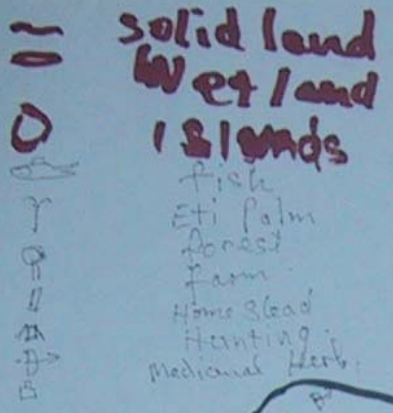 solid land
Wetland
Islands
fish
Eti Palm
forest
farm
Home Stead
Hunting
Medicinal Herb.